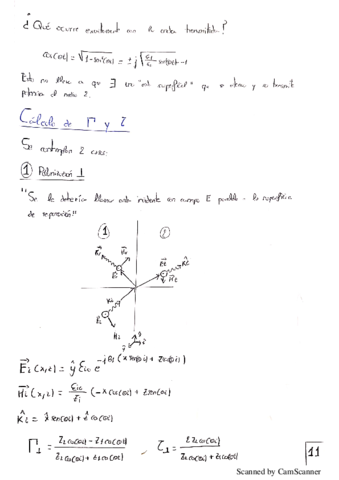 ¿Qué ocurre exactamente con la onda transmitida?
cos(θt) = √(1-sin²(θt)) = ± j √(ε1/ε2 sin²(θi) - 1
Esto nos lleva a que ∃ una "onda superficial" que se atenúa y se transmite
Cálculo de Γ y τ
Se contemplan 2 casos:
① Polarización ⊥
"Se le debería llamar onda incidente con campo E paralelo a la superficie
de separación"
① ②
E⃗i(x,z) = ŷ Eio e^-jβ1(x sen(θi) + z cos(θi))
H⃗i(x,z) = Eio/Z1 (-x̂ cos(θi) + ẑ sen(θi))
K̂i = x̂ sen(θi) + ẑ cos(θi)
Γ⊥ = Z2 cos(θi) - Z1 cos(θt) / Z2 cos(θi) + Z1 cos(θt) , τ⊥ = 2 Z2 cos(θi) / Z2 cos(θi) + Z1 cos(θt)
11
Scanned by CamScanner